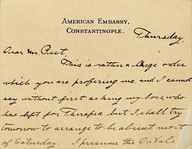 AMERICAN EMBASSY,
CONSTANTINOPLE.
Thursday
Dear Mr.
This is rather a large order
which you are profering me and I cannot
say without first asking my boss, who
has left for Therapia but I shall try
tomorrow to arrange to be absent most
of Saturday. I presume the